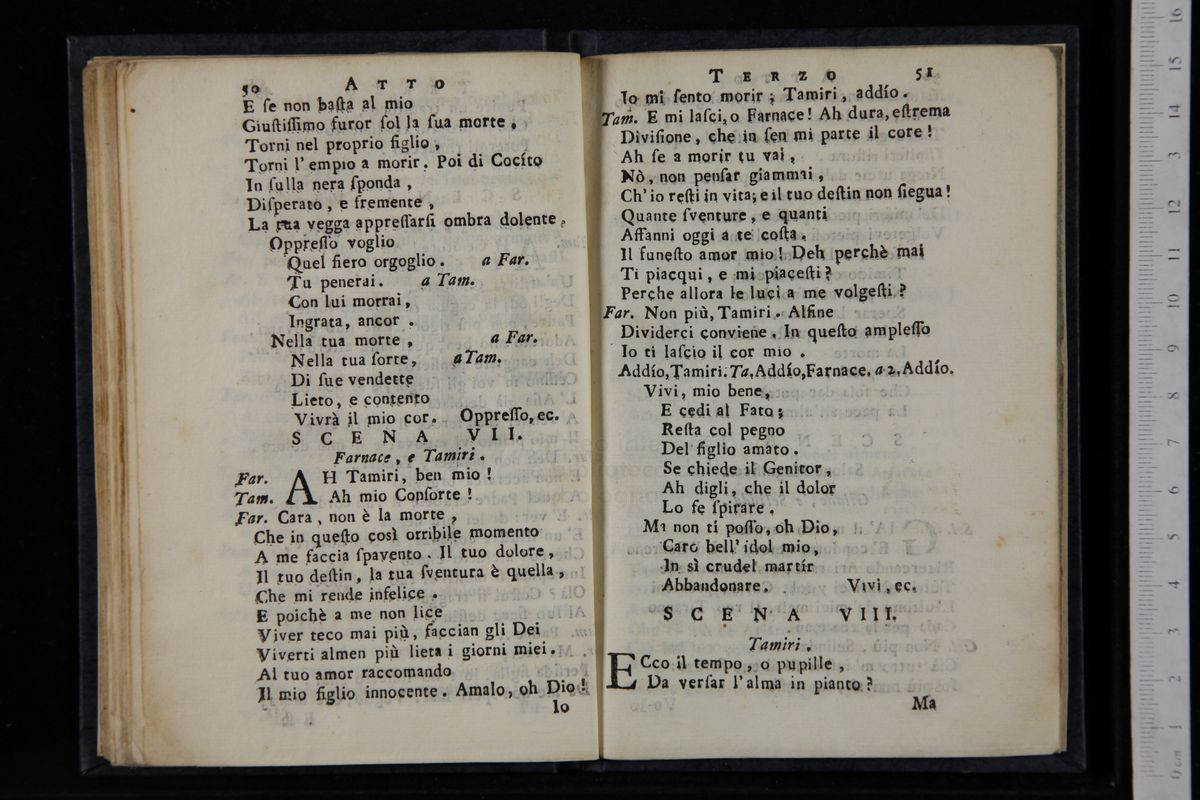 50 ATTO
E ſe non baſta al mio
Giuſtiſſimo furor ſol la ſua morte,
Torni nel proprio figlio,
Torni l'empio a morir. Poi di Cocíto
In ſulla nera ſponda,
Diſperato, e fremente,
La tua vegga appreſſarſi ombra dolente.
Oppreſſo voglio
Quel fiero orgoglio. a Far.
Tu penerai. a Tam.
Con lui morrai,
Ingrata, ancor.
Nella tua morte, a Far.
Nella tua ſorte, a Tam.
Di ſue vendette
Lieto, e contento
Vivrà il mio cor. Oppreſſo, ec.
SCENA VII.
Farnace, e Tamiri.
Far. AH Tamiri, ben mio!
Tam. Ah mio Conſorte!
Far. Cara, non è la morte,
Che in queſto così orribile momento
A me faccia ſpavento. Il tuo dolore,
Il tuo deſtin, la tua ſventura è quella,
Che mi rende infelice.
E poichè a me non lice
Viver teco mai più, faccian gli Dei
Viverti almen più lieta i giorni miei.
Al tuo amor raccomando
Il mio figlio innocente. Amalo, oh Dio!
Io
TERZO 51
Io mi ſento morir; Tamiri, addío.
Tam. E mi laſci, o Farnace! Ah dura, eſtrema
Diviſione, che in ſen mi parte il core!
Ah ſe a morir tu vai,
Nò, non penſar giammai,
Ch'io reſti in vita; e il tuo deſtin non ſiegua!
Quante ſventure, e quanti
Affanni oggi a te coſta.
Il funeſto amor mio! Deh perchè mai
Ti piacqui, e mi piaceſti?
Perche allora le luci a me volgeſti?
Far. Non più, Tamiri. Alfine
Dividerci conviene. In queſto ampleſſo
Io ti laſcio il cor mio.
Addío, Tamiri. Ta. Addío, Farnace. a 2. Addío.
Vivi, mio bene,
E cedi al Fato;
Reſta col pegno
Del figlio amato.
Se chiede il Genitor,
Ah digli, che il dolor
Lo fe ſpirare.
Ma non ti poſſo, oh Dio,
Caro bell'idol mio,
In sì crudel martír
Abbandonare. Vivi, ec.
SCENA VIII.
Tamiri.
ECco il tempo, o pupille,
Da verſar l'alma in pianto?
Ma
0 cm 1 2 3 4 5 6 7 8 9 10 11 12 13 14 15 16